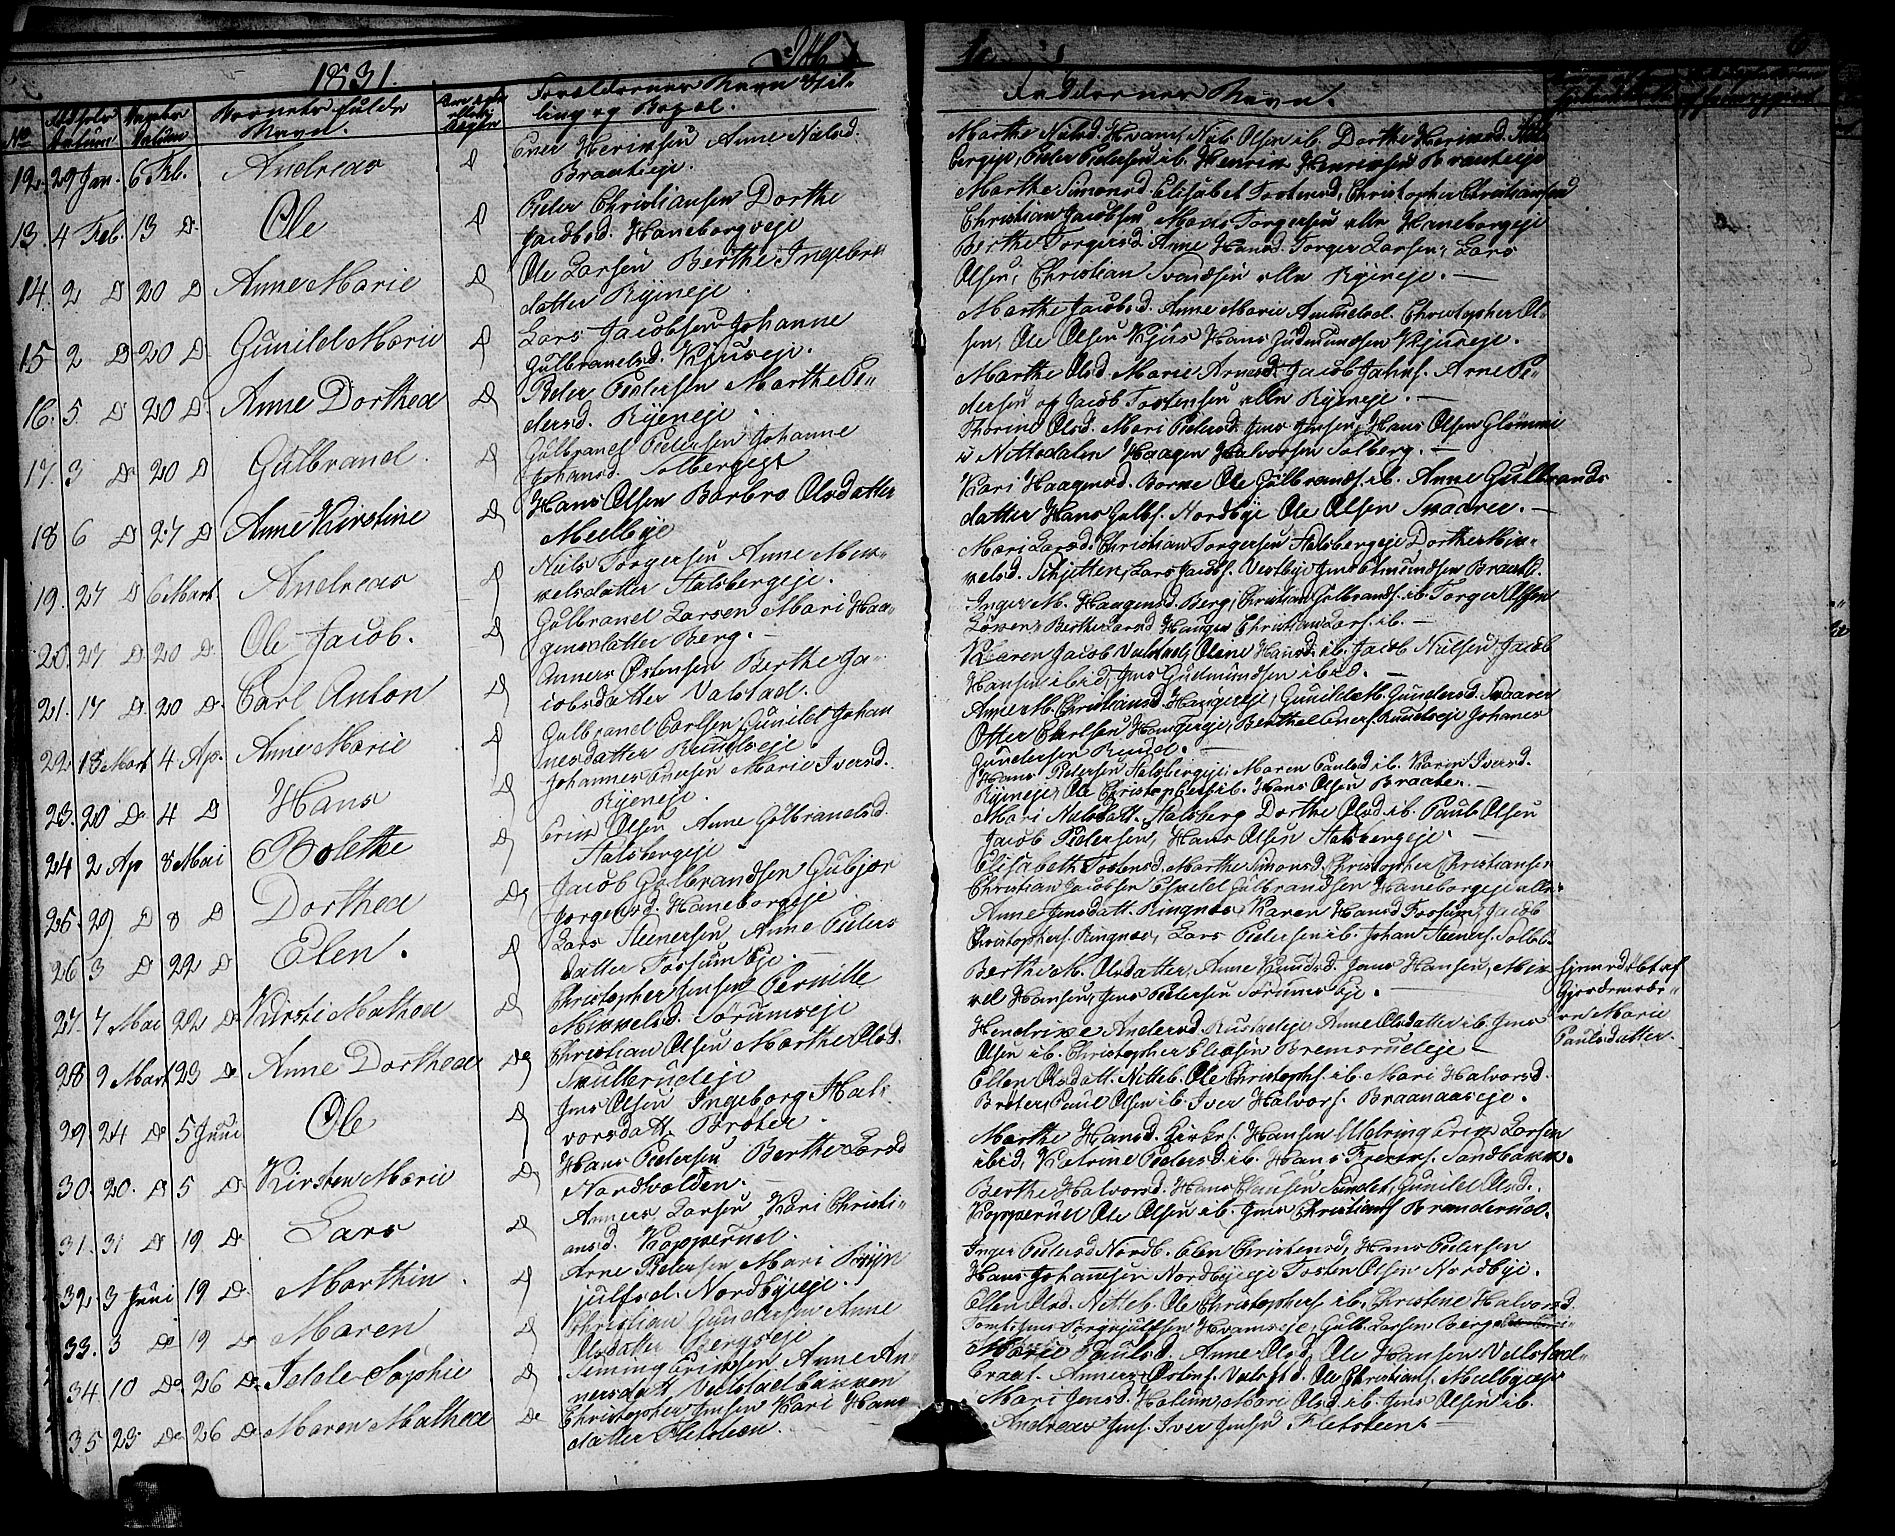 1831.
No
Barnets fulde
Navn.
Forældrenes Navn Stil-
ling og Bopæl.
Faddernes Navn.
12. 29 Jan. 6 Feb. Andreas D
Braateeje.
13. 4 Feb. 13 D. Ole D Peder Christiansen Dorthe
Jacobsd. Haneborgeje
14. 2 D 20 D Anne Marie D Ole Larsen Berthe Ingebre
datter Ryeneje.
15 2 D 20 D. Gunild Marie D Lars Jacobsen Johanne
Gulbrandsd. Kjuseje.
16. 5 D 20 D. Anne Dorthea D Peder Pedersen Marthe Pe-
dersd. Ryeneje.
17. 3 D 20 D Gulbrand D Gulbrand Pedersen Johanne
Johansd. Solbergeje
18 6 D 27 D Anne Kirstine D Hans Olsen Barbro Olsdatter
Melbye
19. 27 D 6 Mart. Andreas D Niels Torgersen Anne Mik-
kelsdatter Stalsbergeje.
20. 27 D 20 D. Ole Jacob. D Gulbrand Larsen Mari Haa-
gensdatter Berg.
21. 17 D. 20 D. Carl Anton D Anners Østensen Berthe Ja-
cobsdatter Valstad.
22. 18 Mart 4 Ap. Anne Marie D Gulbrand Carlsen Gunild Johan
nesdatter Rundseje.
23. 20 D 4 D Hans D Johannes Evensen Marie Iversd.
Ryeneje.
24 2 Ap 8 Mai Bolethe D Erik Olsen Anne Gulbrandsd.
Stalsbergeje
25. 29 D 8 D Dorthea Do Jacob Gulbrandsen Gubjør
Jørgensd. Haneborgeje
26 3 D 22 D Elen. D Lars Steenersen Anne Peders
datter Fossum Eje.
27. 7 Mai 22 D Kirsti Mathea D Christopher Jensen Pernille
Mikkelsd. Sørumseje
28 9 Mart 23 Do Anne Dorthea Do Christian Olsen Marthe Olsd.
Skullerudeje
29. 24 Do 5 Juni Ole D Jens Olsen Ingeborg Hal-
vorsdatt. Brøter.
30. 20. D 5 D. Kirsten Marie D Hans Pedersen Berthe Larsd
Nordvolden.
31. 31 D 19 D. Lars D Anners Larsen Kari Christi-
ansd. Kopperud.
32. 3 Juni 19 D. Marthin. D Arne Pedersen Mari Bryn
julfsd. Nordbyeeje.
33. 3 Do 19 Do Maren D Christian Gundersen Anne
Olsdatter Bergseje
34 10 Do 26 Do Idde Sophie D Erichsen Anne An-
nersdatt. Valstadbakken
35 23 Do 26 Do Maren Mathea Do Christopher Jensen Kari Hans
datter Fletsteen.
Marthe Nielsd. Hvam, Niels Olsen ib. Dorthe
Peder Pedersen ib. Braateeje
Marthe Simensd. Elisabet Tostensd, Christopher Christiansen
Christian Jacobsen Mads Torgersen alle Haneborgeje
Berthe Torgersd. Anne Hansd. Torger Larsen, Lars
Olsen, Christian Svendsen alle Ryeneje.
Marthe Jacobsd. Anne Marie Amundsd. Christopher Ol-
sen, Ole Olsen Kjus Hans Gudmundsen Kjuseje.
Marthe Olsd. Marie Arnesd. Jacob Johns. Arne Pe-
dersen og Jacob Tostensen alle Ryeneje.
Thorine Olsd. Mari Pedersd. Jens Jensen, Hans Olsen Glømmi
i Nittedalen Haagen Halvorsen Solberg.
Kari Haagensd. Borne Ole Gulbrands. ib. Anne Gulbrands
datter Hans Gulbs. Nordbye Ole Olsen Svaaree.
Mari Larsd. Christian Torgersen Stalsbergeje Dorthe Mik-
kelsd. Schjetten, Lars Jacobs. Vestbye Jens Braate.
Inger M. Haagensd. Berg, Christian Gulbrands. ib. Torger
Berthe Larsd Hauger Christian Lars. ib.
Karen Jacob Valstad, Olene Hansd. ib. Jacob Nielsen, Jacob
Hansen ibid, Jens Gudmundsen ibid.
Anne M. Christiansd. Haugereje, Gunild M. Gundersd. Svaaree
Otter Carlsen Haugereje, Berthe Evens. Rundseje Johanes
Gundersen Rund.
Hans Pedersen Stalsbergeje, Maren Paulsd. ib. Karen Iversd.
Ryeneje, Ole Christophers. ib. Hans Olsen Braate.
Mari Nielsdatt. Stalsberg Dorthe Olsd. ib. Paul Olsen
Jacob Pedersen, Hans Olsen Stalsbergeje.
Elisabeth Tostensd. Marthe Simonsd. Christopher Christianse-
Christian Jacobsen Eskild Gulbrandsen Haneborgeje alle.
Anne Jensdatt. Ringnes, Karen Hansd Fossum, Jacob
Christophers. Ringnes, Lars Pedersen ib. Johan Steeners. Solbe-
Berthe M. Olsdatter, Anne Knudsd. Jens Hansen, Mik-
kel Hansen, Jens Pedersen Sørumseje.
Hjemedøbt af
Gjordemode-
ren Marie
Paulsdatter.
Hendrixe Andersd. Rustadeje Anne Olsdatter ib. Jens
Olsen ib. Christopher Eliasen Bremsrudeje
Ellen Olsdatt. Nitteb. Ole Christophs. ib. Mari Halvorsd.
Brøter, Paul Olsen ib. Iver Halvors. Braanaaseje.
Marthe Hansd. Hansen Erik Larsen
ibid, Katrine Pedersd. ib. Hans Sandbakk.
Berthe Halvorsd. Hans Clausen Sundet, Gunild Olsd.
Kopperud Ole Olsen ib. Jens Christians Branderud.
Inger Pedersd Nordb. Elen Christensd, Hans Pedersen
Hans Johannsen Nordbyeeje Tosten Olsen Nordbye.
Ellen Olsd. Nitteb. Ole Christophers. ib. Christine Halvorsd.
Brynjulfsen Hvamseje, Gulb. Larsen Berg
Marie Paulsd. Anne Olsd, Ole Hansen Valstad-
Braat. Anners Østens. Valst d. Ole Christians Melbyeeje
Mari Jensd. Holum, Mari Olsd. ib. Jens Olsen ib.
Andreas Jens. Iver Jensen Fletsteen